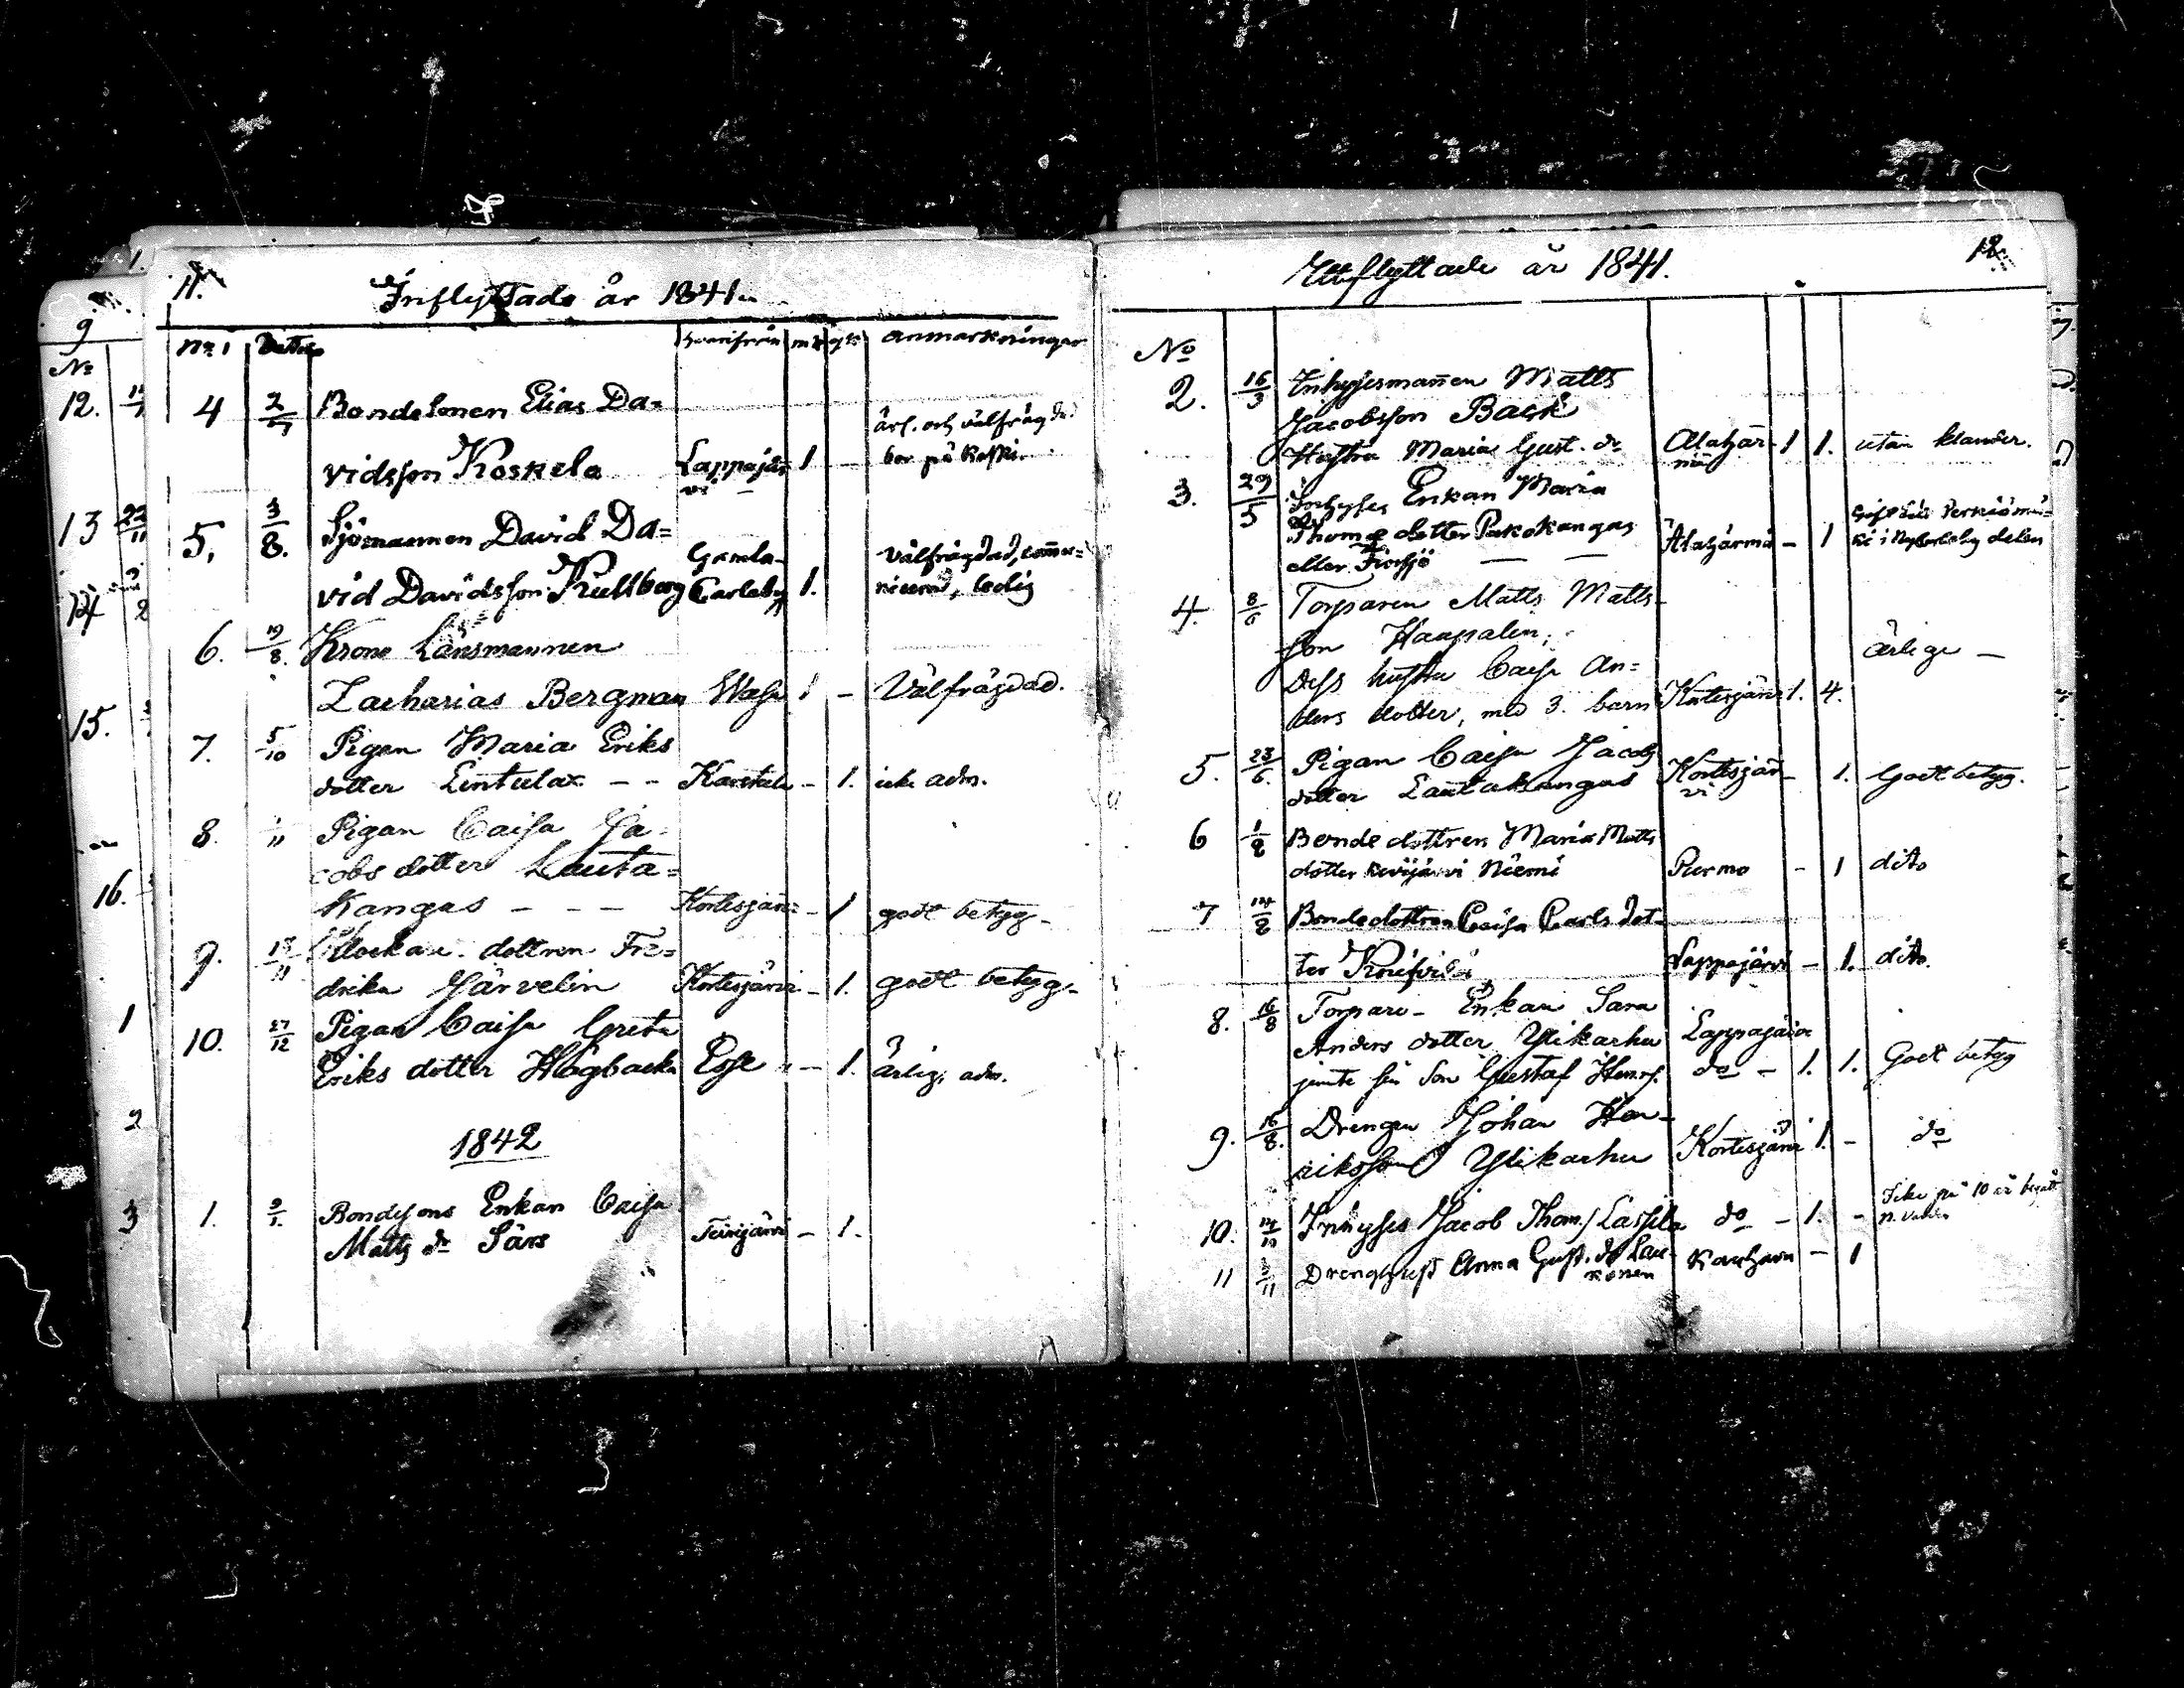 11.
Inflyttade år 1841.
No Datum hvarifrån mk qk anmärkningar
4 Bondesonen Elias Da=
vidsson Koskela Lappajär= 1 - ärl. och välfrägdad
vi bor på Koski
5. 3/8. Sjömannen David Da=
vid Davidsson Kullberg Gamla- Carleby 1. Välfrägdad, commu=
nicerad, ledig
6. 19/8. Krono Länsmannen
Zacharias Bergman Wasa 1 - Välfrägdad.
7. 5/10 Pigan Maria Eriks
dotter Lintulax - - Karstula - 1. icke adm.
8. Pigan Caisa Ja=
cobs dotter Lauta=
kangas - - - Kortesjärvi - 1 godt betyg -
9. Klockare dottren Fre=
drika Järvelin Kortesjärvi - 1. godt betyg -
10. 27/12 Pigan Caisa Greta
Eriks dotter Högbacka Esse - 1. ärlig, adm.
1842
1. Bondesons Enkan Caisa
Matts dr Särs Teirijärvi - 1.
12
Utflyttade år 1841.
No
2. 16/3 Inhysesmannen Matts
Jacobsson Back
Hustru Maria Gust. dr Alahär- 1 1. utan klander.
mä
3. 29/5 Inhyses Enkan Maria
Thomæ dotter Pukokangas Alahärmä - 1
eller Forsjö - -
4. 8/6 Torparen Matts Matts-
son Haapalen,
Dess hustru Caisa An= ärlige -
ders dotter, med 3. barn Kortesjärvi 1. 4.
5. 23/6. Pigan Caisa Jacobs
dotter Lautakangas Kortesjär- vi 1. Godt betyg.
6 1/8 Bonde dottren Maria Matts
dotter Kivijärvi Niemi Purmo - 1 dito
7 14/8 Bondedottren Caisa Carls dot-
ter Lappajärvi - 1. dito.
8. 16/8 Torpare- Enkan Sara
Anders dotter Ylikarhu Lappajärvi
jemte sin Son Gustaf Henrs. do - 1. 1. Godt betyg
9. 16/8. Drengen Johan Hen-
riksson Ylikarhu Kortesjärvi 1. - do
10. Inhyses Jacob Thoms. Lassila do - 1. - Icke på 10 år begått
n.
11 Drenghust Anna Gust. dr Lau-
konen Kauhava - 1